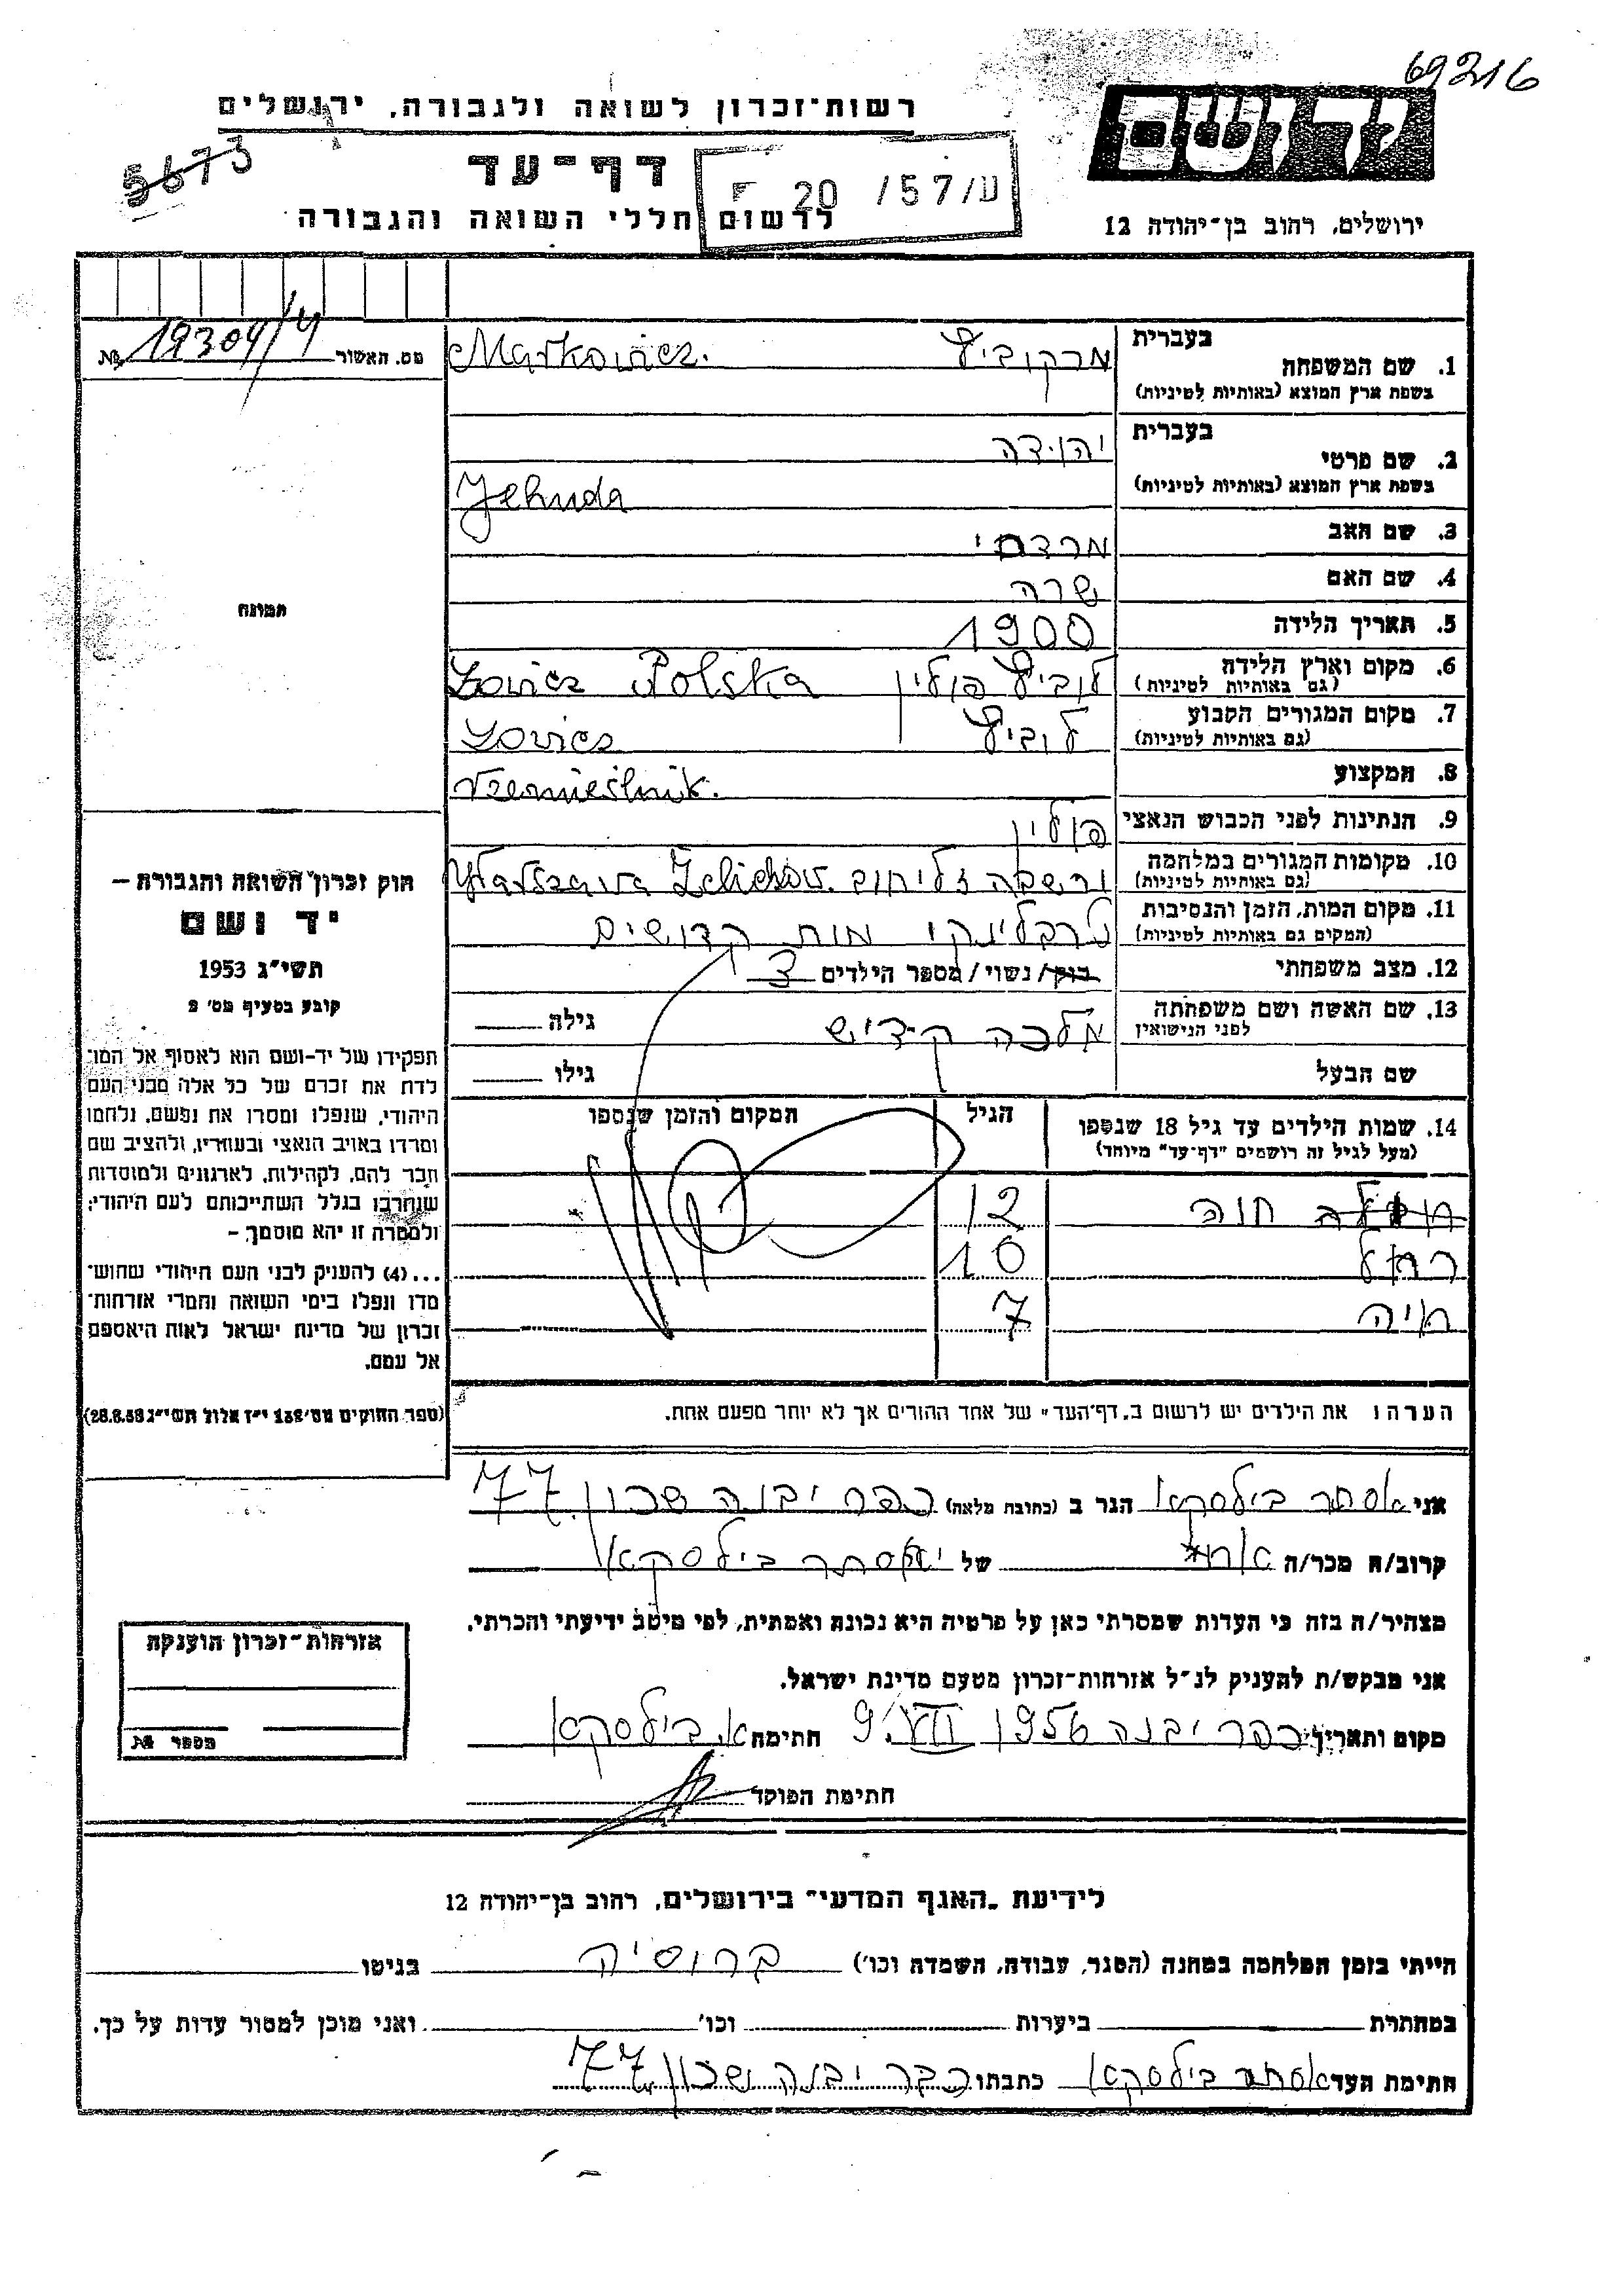 69216
רשות-זכרון לשואה ולגבורה, ירושלים
5673
דף-עד
ע/57/ 20
לרשום חללי השואה והגבורה
ירושלים, רחוב בן-יהודה 12
מס. האשור 19304/4 №
בעברית
1. שם המשפחה מרקוביץ Markowicz.
בשפת ארץ המוצא (באותיות לטיניות)
בעברית
2. שם פרטי יהודה
בשפת ארץ המוצא (באותיות לטיניות) Jehuda
3. שם האב מרדכי
4. שם האם שרה
5. תאריך הלידה 1900
6. מקום וארץ הלידה לוביץ פולין Lovicz Polska
(גם באותיות לטיניות)
7. מקום המגורים הקבוע לוביץ Lovicz
(גם באותיות לטיניות)
8. המקצוע
9. הנתינות לפני הכבוש הנאצי פולין
10. מקומות המגורים במלחמה ורשבה זליחוב Warszawa Zelichow.
(גם באותיות לטיניות)
11. מקום המות, הזמן והנסיבות טרבלינקי מות קדושים
(המקום גם באותיות לטיניות)
12. מצב משפחתי רוק/נשוי/מספר הילדים 3
13. שם האשה ושם משפחתה מלכה קידוש גילה
לפני הנישואין
שם הבעל גילו
14. שמות הילדים עד גיל 18 שנספו הגיל המקום והזמן שנספו
(מעל לגיל זה רושמים "דף-עד" מיוחד)
חוה 12
רחל 10
חיה 7
הערה: את הילדים יש לרשום ב"דף-העד" של אחד ההורים אך לא יותר מפעם אחת.
תמונה
חוק זכרון השואה והגבורה –
יד ושם
תשי"ג 1953
קובע בסעיף מס' 2
תפקידו של יד-ושם הוא לאסוף אל המו־
לדת את זכרם של כל אלה מבני העם
היהודי, שנפלו ומסרו את נפשם, נלחמו
ומרדו באויב הנאצי ובעוזריו, ולהציב שם
וזכר להם, לקהילות, לארגונים ולמוסדות
שנחרבו בגלל השתייכותם לעם היהודי;
ולמטרה זו יהא מוסמך –
...(4) להעניק לבני העם היהודי שהוש־
מדו ונפלו בימי השואה והמרי אזרחות־
זכרון של מדינת ישראל לאות היאספם
אל עמם.
(ספר החוקים מס' 132 י"ז אלול תשי"ג 28.8.53)
אני אסתר בילסקא הגר ב (כתובת מלאה) כפר יבנה שכון 77
קרוב/ה מכר/ה של אסתר בילסקא
מצהיר/ה בזה כי העדות שמסרתי כאן על פרטיה היא נכונה ואמתית, לפי מיטב ידיעתי והכרתי.
אני מבקש/ת להעניק לנ"ל אזרחות-זכרון מטעם מדינת ישראל.
מקום ותאריך כפר יבנה 1956 9.VII חתימה א. בילסקא
חתימת הפוקד
אזרחות-זכרון הוענקה
מספר №
לידיעת "האגף המדעי" בירושלים, רחוב בן-יהודה 12
הייתי בזמן המלחמה במחנה (הסגר, עבודה, השמדה וכו') ברוסיה בגיטו
במחתרת ביערות וכו' ואני מוכן למסור עדות על כך.
חתימת העד אסתר בילסקא כתבתו כפר יבנה שכון 77